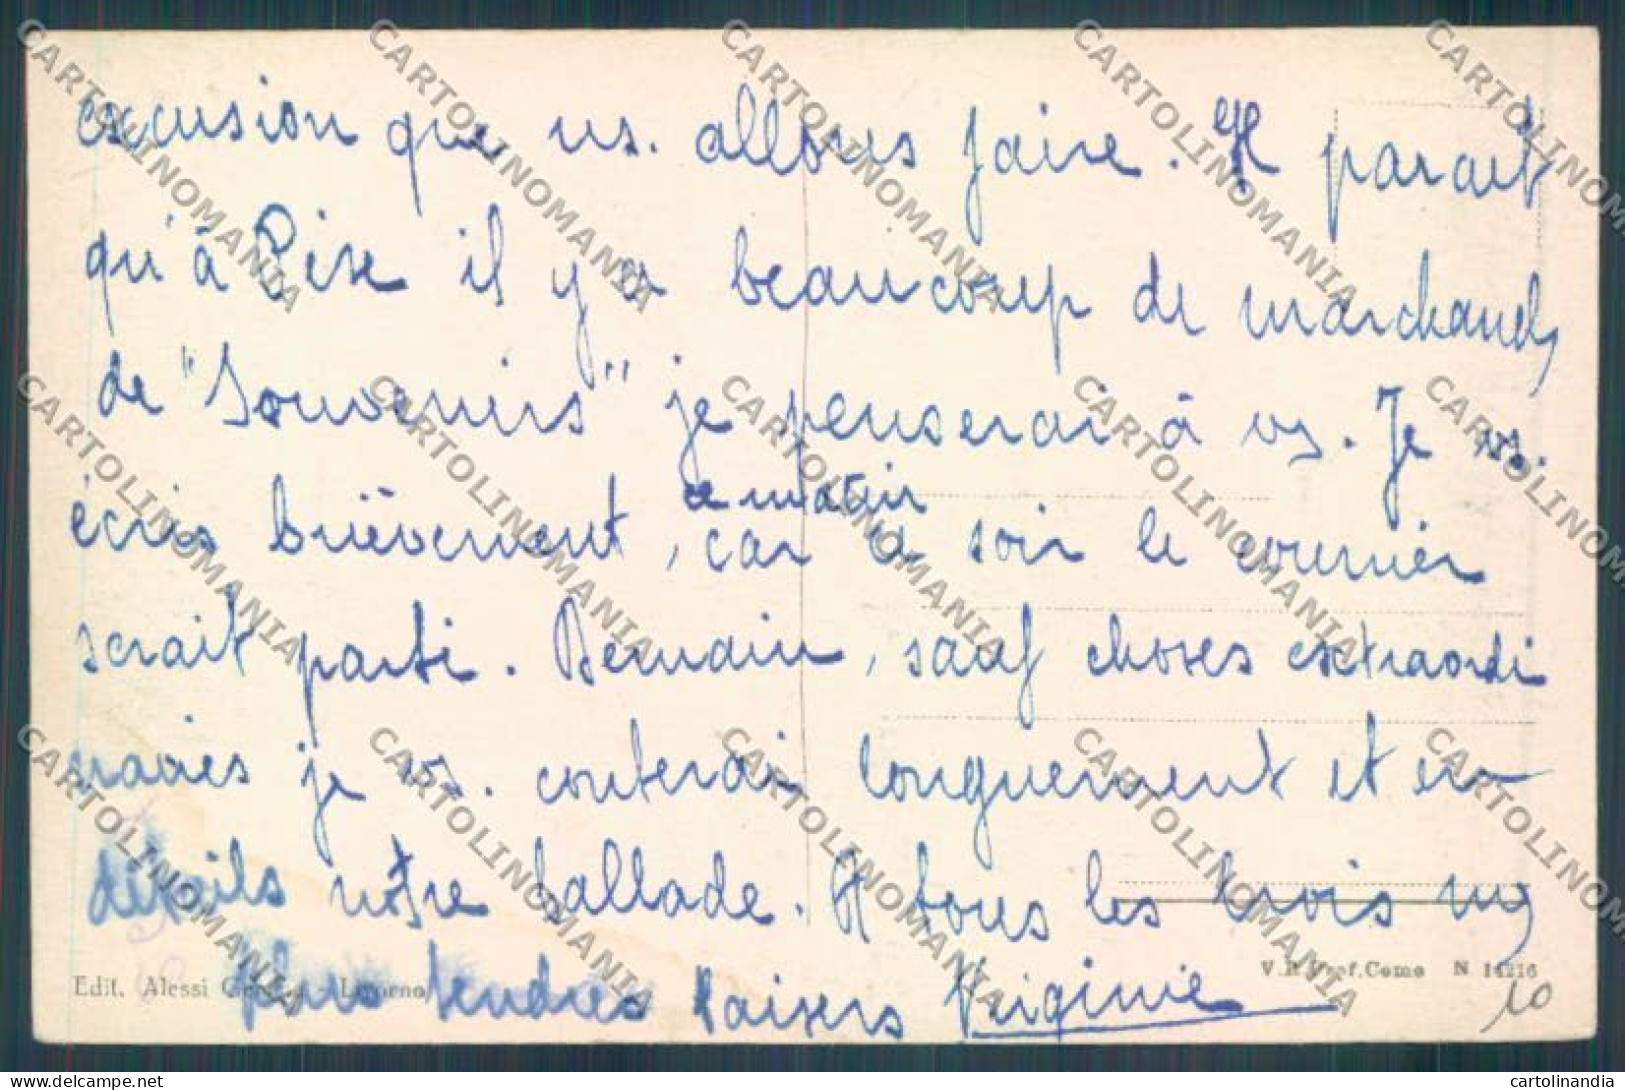 excusion que ns. allons faire. Il parait
qu'à Pise il y a beaucoup de marchands
de "Souvenirs" je penserai à vs. Je vs.
ce matin
écris brièvement, car ce soir le courrier
serait parti. Demain, sauf choses extraordi
naires je vs. conterai longuement et en
détails notre ballade. A tous les trois mes
plus tendres baisers Virginie
Edit. Alessi - Livorno
V.E. Prof. Como N 14216
10
CARTOLINOMANIA
cartolinandia
delcampe.net